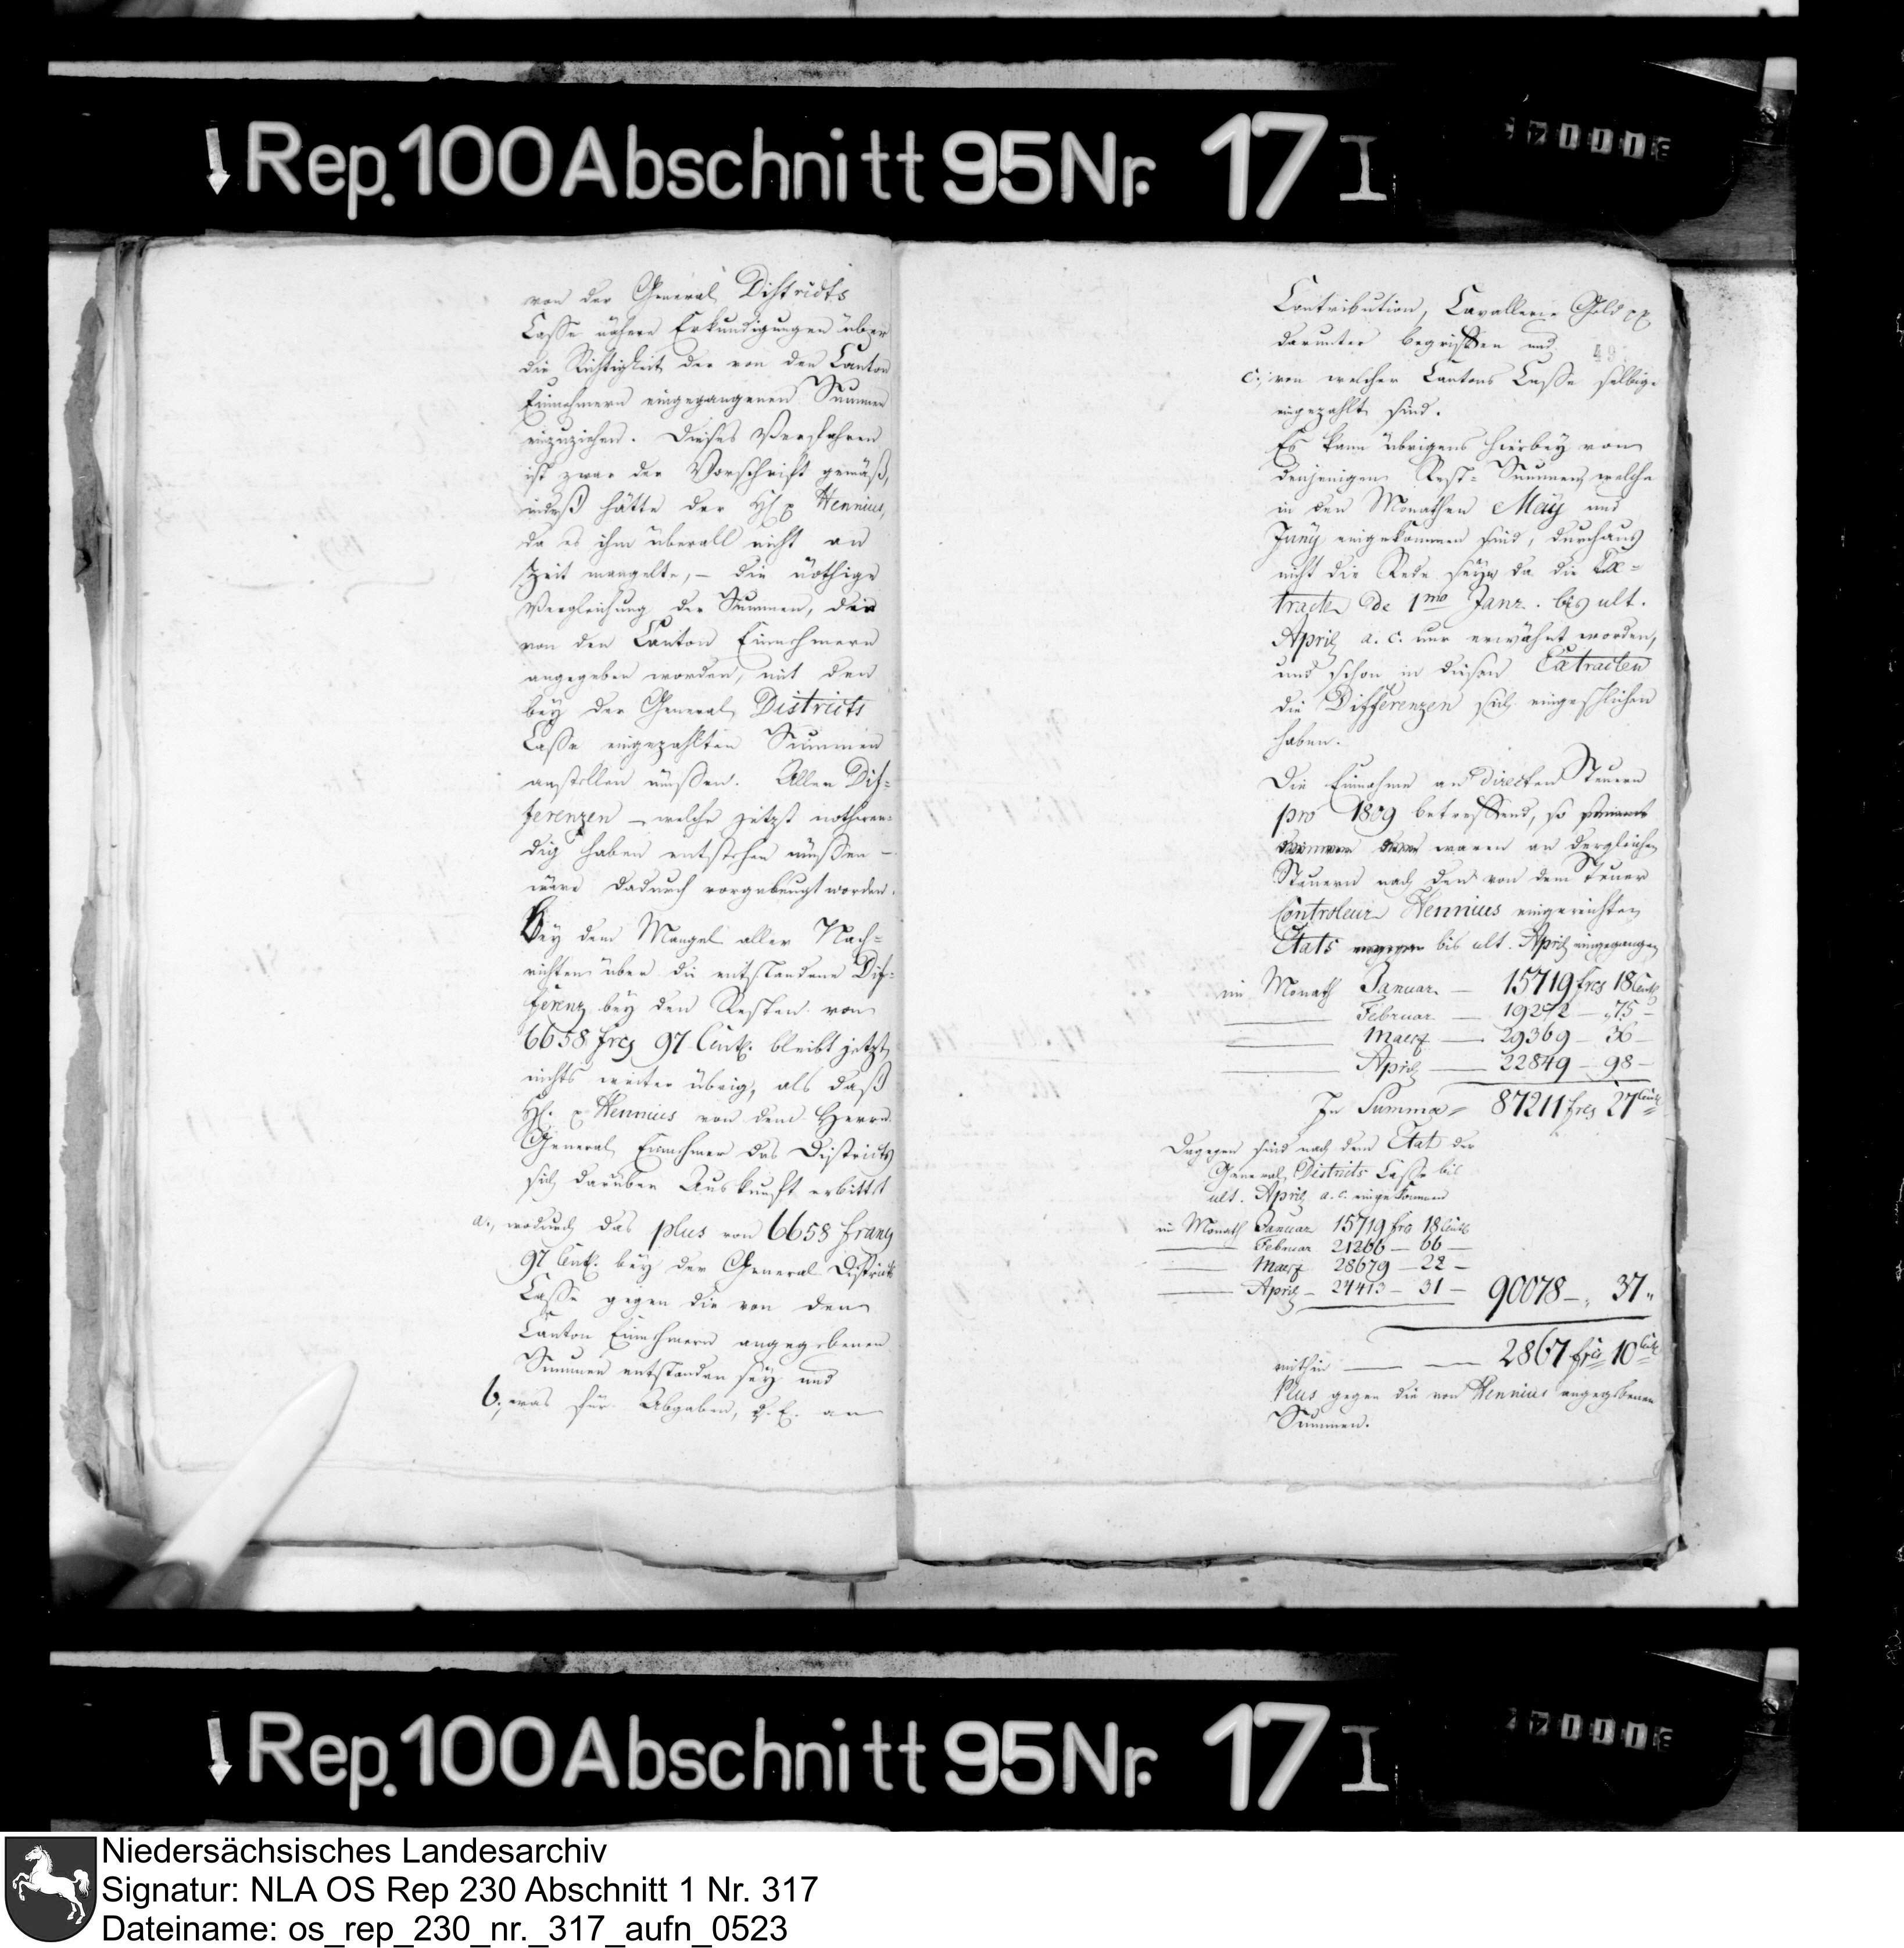 Rep. 100 Abschnitt 95 Nr. 17 I
von der General Districts
Casse nähere Erkundigungen über
die Richtigkeit der von den Canton
Einnehmern eingegangenen Summen
einzuziehen. Dieses Verfahren
ist zwar der Vorschrift gemäß,
indeß hätte der H. p Hennius,
da es ihm überall nicht an
Zeit mangelte, – die nöthige
Vergleichung der Summen, die
von den Canton Einnehmern
angegeben worden, mit den
bey der General Districts
Casse eingezahlten Summen
anstellen müssen. Allen Dif=
ferenzen – welche jetzt nothwen=
dig haben entstehen müssen –
wäre dadurch vorgebeugt worden.
Bey dem Mangel aller Nach=
richten über die entstandene Dif=
ferenz bey den Resten von
6658 frcs 97 Cent. bleibt jetzt
nichts weiter übrig, als daß
H. p Hennius von dem Herrn
General Einnehmer des Districts
sich darüber Auskunft erbittet
a., wodurch das plus von 6658 Francs
97 Cent. bey der General Districts
Casse gegen die von den
Canton Einnehmern angegebenen
Summen entstanden sey und
b., was für Abgaben, z. E. an
Contribution, Cavallerie Geld pp
darunter begriffen und
49
c., von welcher Cantons Casse selbige
eingezahlt sind.
Es kann übrigens hierbey von
denjenigen Rest= Summen, welche
in den Monathen May und
Juny eingekommen sind, durchaus
nicht die Rede seyn, da die Ex=
tracte de 1mo Janr. bis ult.
April a. c. nur erwähnt worden,
und schon in diesen Extracten
die Differenzen sich eingeschlichen
haben.
Die Einnahme an directen Steuern
pro 1809 betreffend, so
waren an dergleichen
Steuern nach den von dem Steuer
Controleur Hennius eingereichten
Etats bis ult. April eingegangen
im Monath Januar — 15719 frcs 18 Cent
Februar — 19272 — 75 —
Maerz — 29369 — 36 —
April — 22849 — 98 —
In Summa 87211 frcs 27 Cent
Dagegen sind nach dem Etat der
General Districts Casse bis
ult. April a. c. eingekommen
im Monath Januar 15719 frs 18 Cent
Februar 21266 — 66 —
Maerz 28679 — 22 —
April — 24413 — 31 — 90078 — 37 "
mithin — — 2867 frcs 10 Cent
Plus gegen die von Hennius angegebenen
Summen.
Rep. 100 Abschnitt 95 Nr. 17 I
Niedersächsisches Landesarchiv
Signatur: NLA OS Rep 230 Abschnitt 1 Nr. 317
Dateiname: os_rep_230_nr._317_aufn_0523